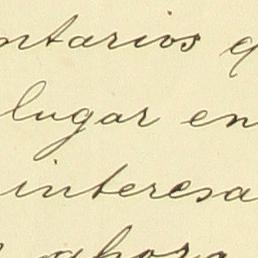 ntarios q
lugar en
interesa
ahora